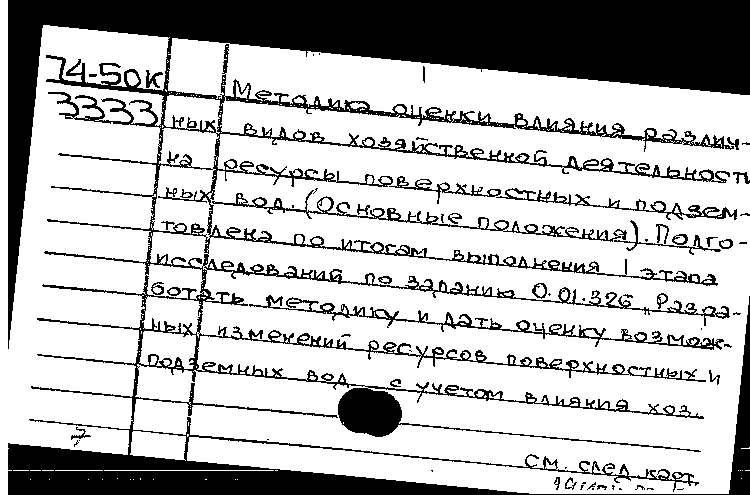 74-50к
3333
Методика оценки влияния различ-
ных видов хозяйственной деятельности
на ресурсы поверхностных и подзем-
ных вод. (Основные положения). Подго-
товлена по итогам выполнения I этапа
исследований по заданию 0.01.326 „Разра-
ботать методику и дать оценку возмож-
ных изменений ресурсов поверхностных и
подземных вод с учетом влияния хоз.
7
см. след. карт.